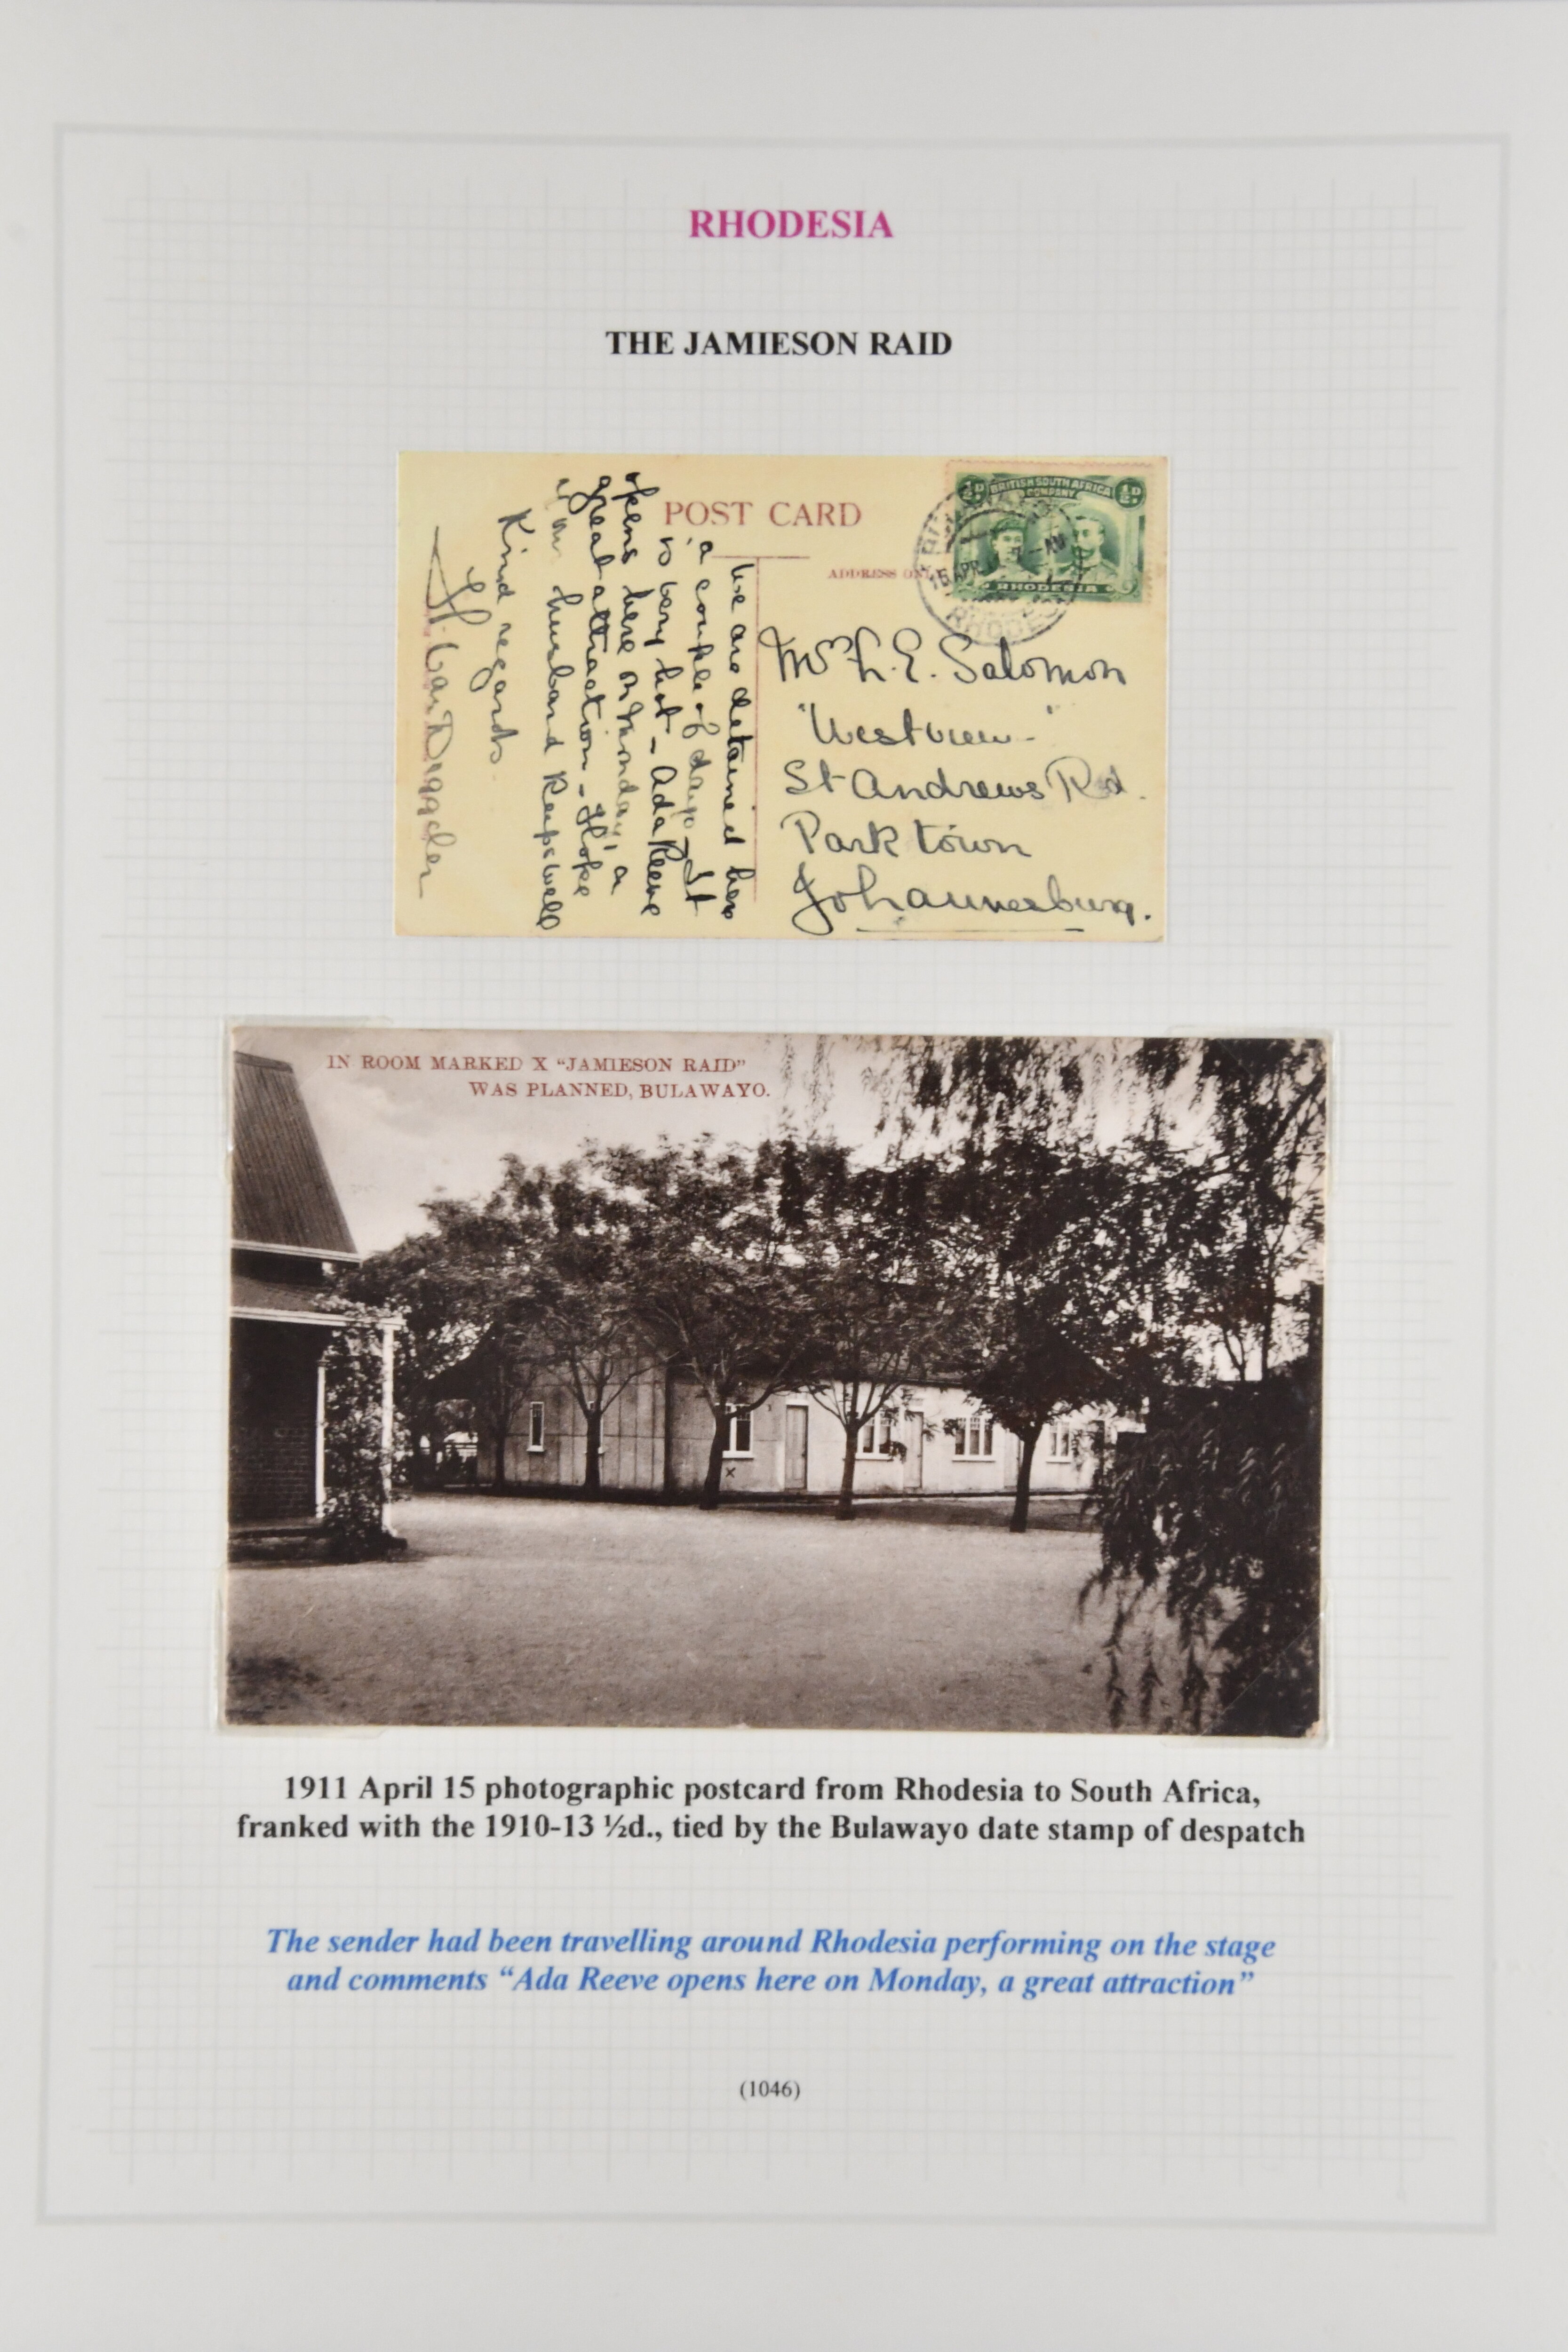 RHODESIA
THE JAMIESON RAID
POST CARD
ADDRESS
½D
BRITISH SOUTH AFRICA
COMPANY
½D
RHODESIA
15 APR
AM
We are detained here
a couple of days - It
is very hot - Ada Reeve
opens here on Monday, a
great attraction - Hope
husband keeps well
Kind regards
Mrs L. E. Salomon
"Westview"
St Andrews Rd.
Parktown
Johannesburg.
IN ROOM MARKED X "JAMIESON RAID"
WAS PLANNED, BULAWAYO.
x
1911 April 15 photographic postcard from Rhodesia to South Africa,
franked with the 1910-13 ½d., tied by the Bulawayo date stamp of despatch
The sender had been travelling around Rhodesia performing on the stage
and comments “Ada Reeve opens here on Monday, a great attraction”
(1046)